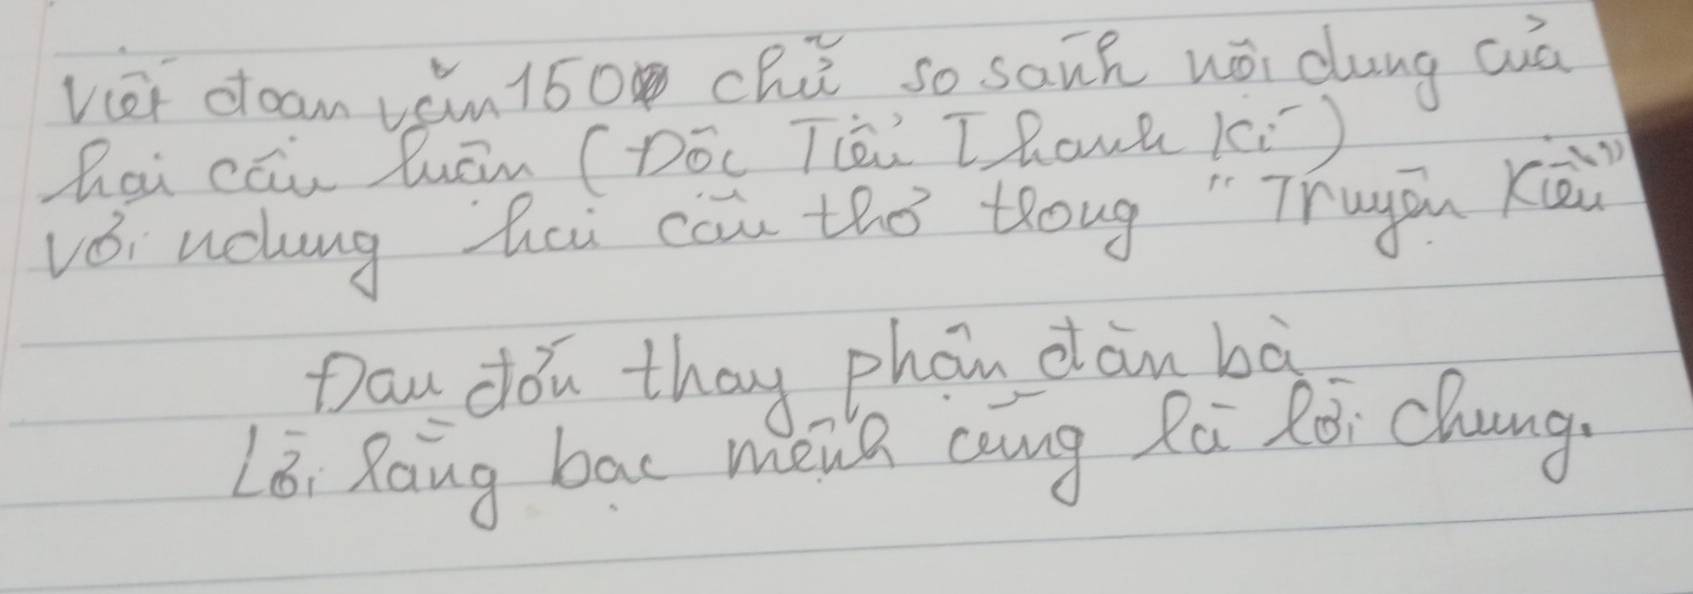 Viết đoạn văn 150 chữ so sánh nội dung của
hai câu luận (Độc Tiểu Thanh kí)
với ndung hai câu thơ trong "Truyện Kiều"
Đau đớn thay phận đàn bà
Lời rằng bạc mệnh cũng là lời chung.